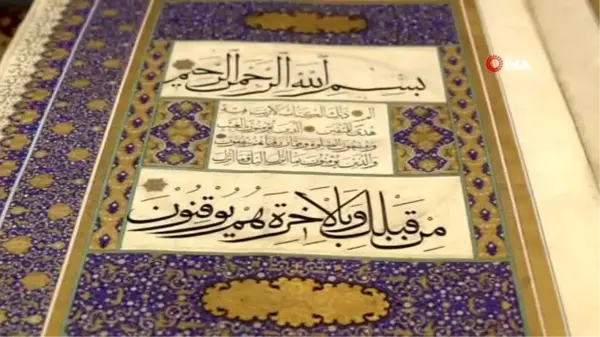 بسم الله الرحمن الرحيم
الم ذلك الكتاب لا ريب فيه
هدى للمتقين الذين يؤمنون بالغيب
ويقيمون الصلوة ومما رزقناهم ينفقون
والذين يؤمنون بما انزل اليك وما انزل
من قبلك وبالاخرة هم يوقنون